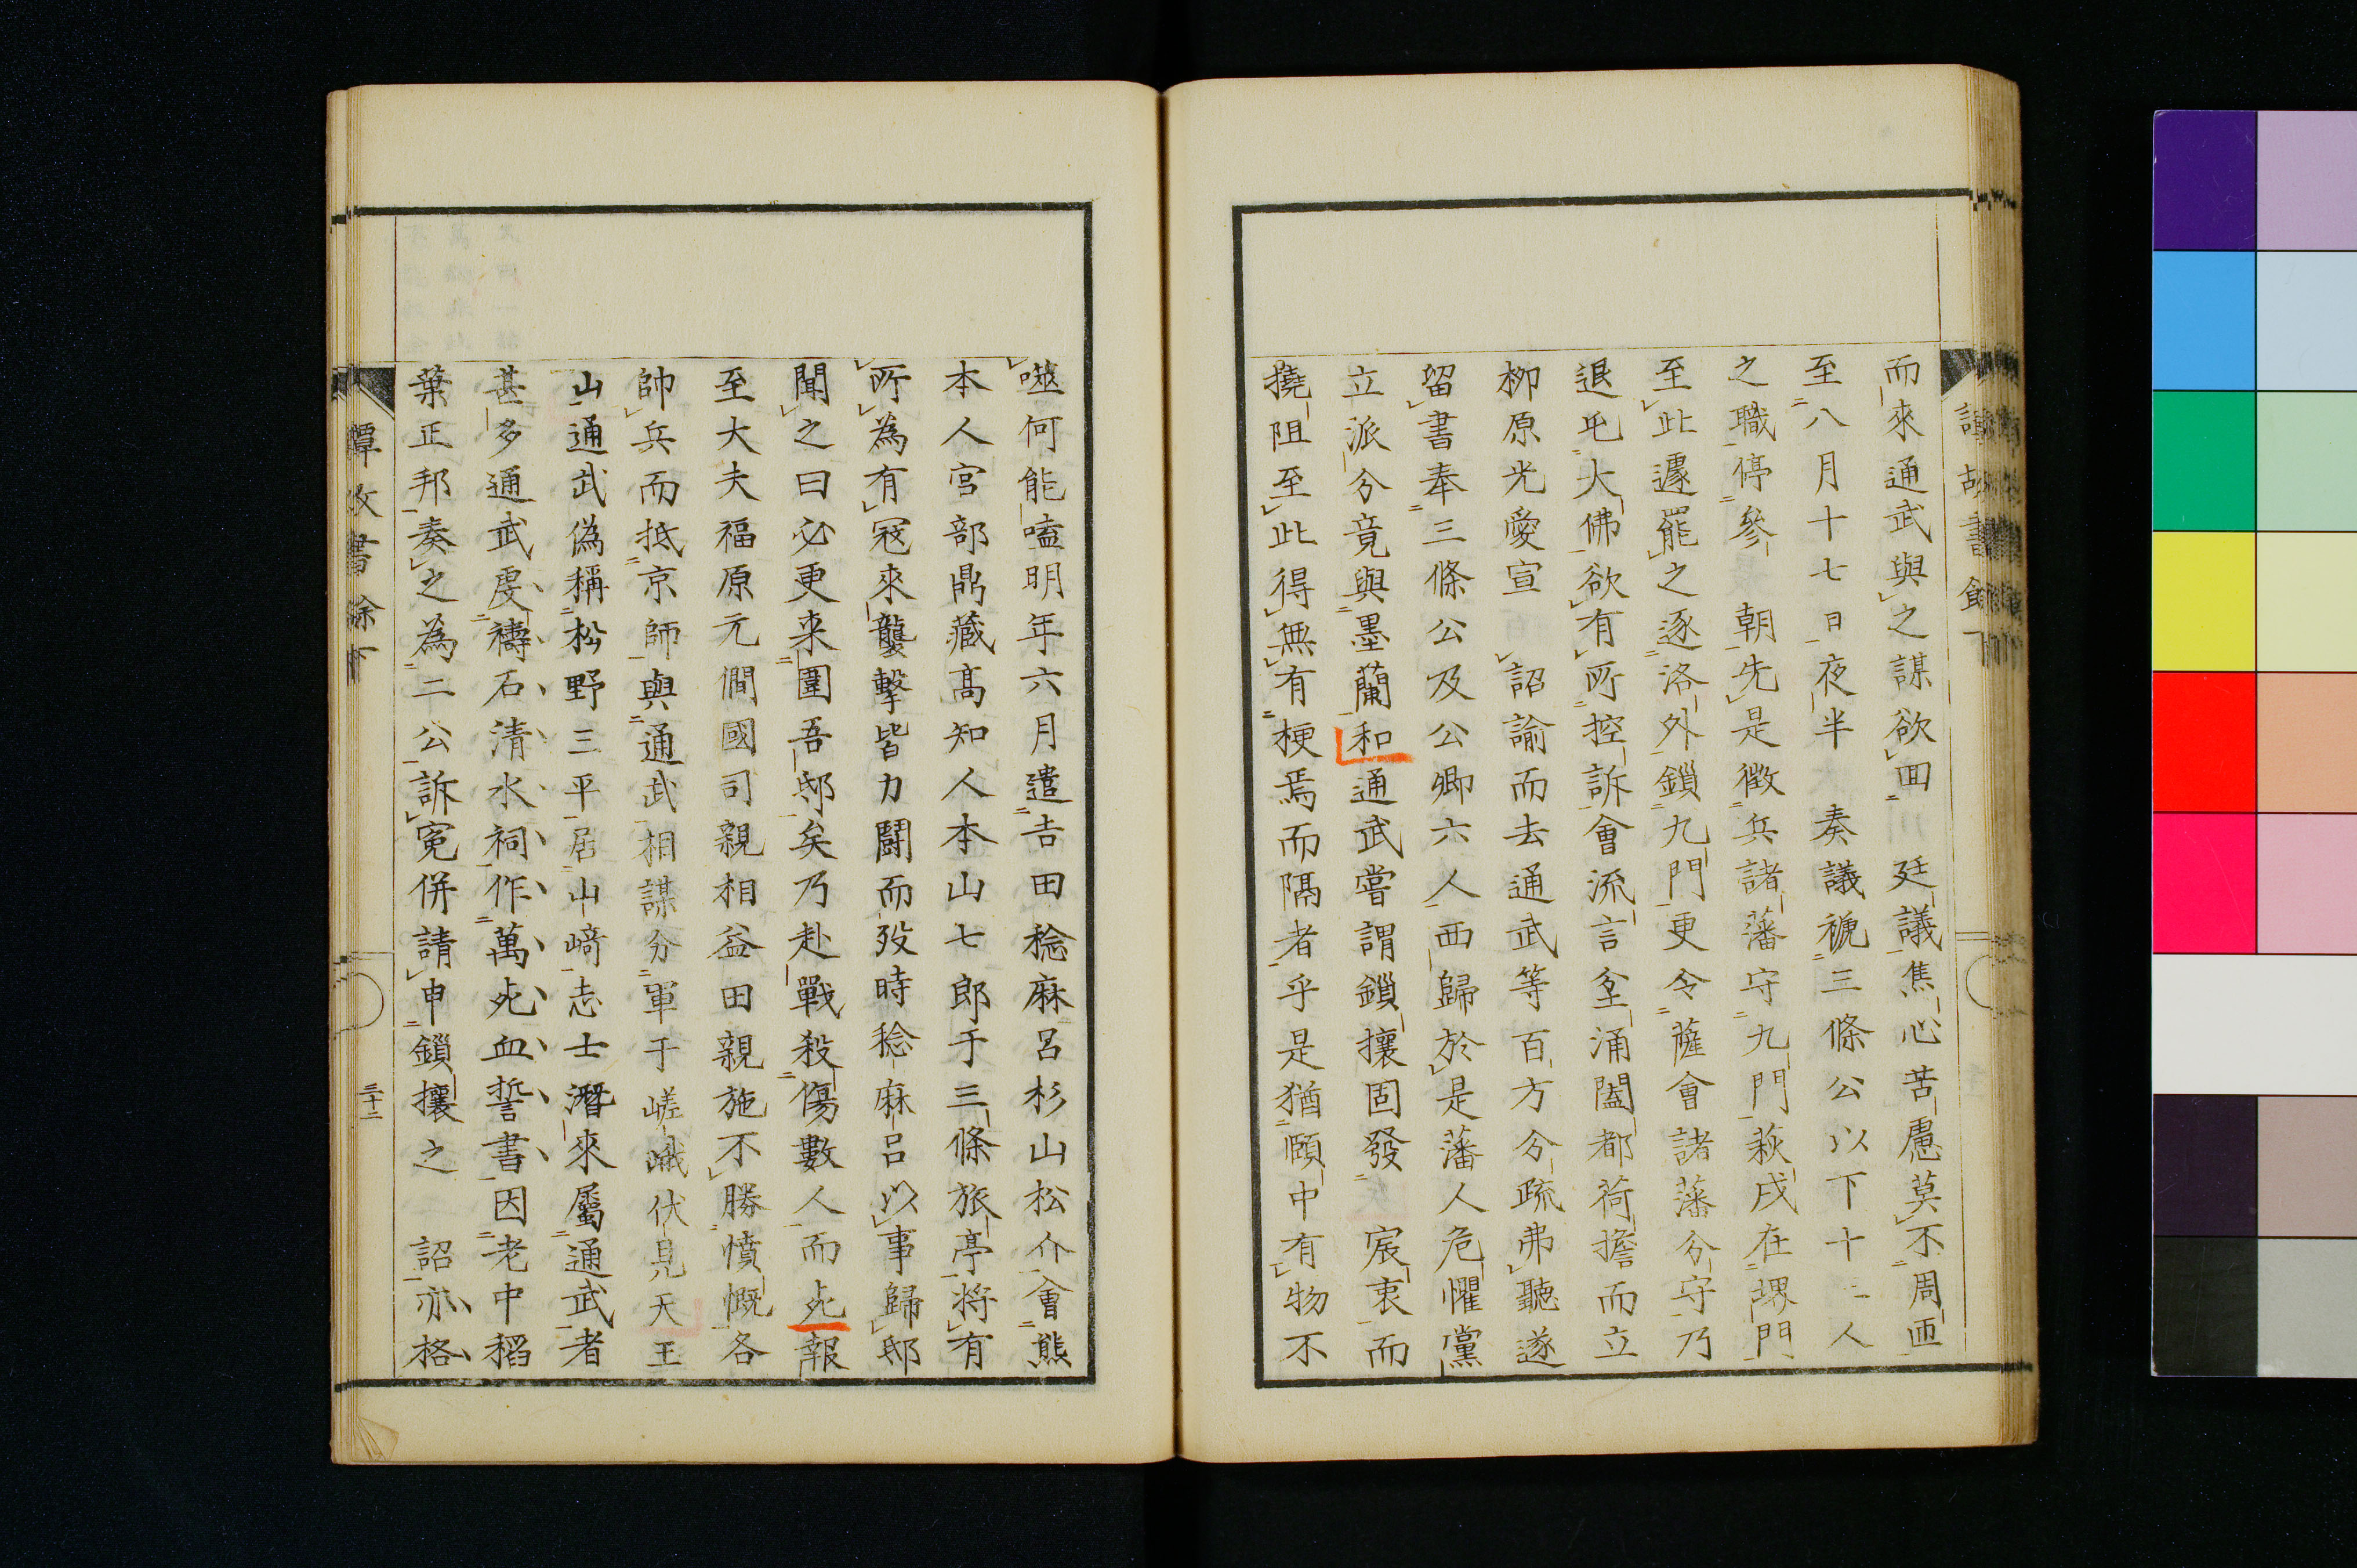 而來通武與之謀欲回廷議焦心苦慮莫不周匝
至八月十七日夜半奏議褫三條公以下十三人
之職停參朝先是徵兵諸藩守九門萩戍在堺門
至此遽罷之逐洛外鎖九門更令薩會諸藩分守乃
退屯大佛欲有所控訴會流言坌涌闔都荷擔而立
柳原光愛宣詔諭而去通武等百方分疏弗聽遂
留書奉三條公及公卿六人西歸於是藩人危懼黨
立派分竟與墨蘭和通武嘗謂鎖攘固發宸衷而
撓阻至此得無有梗焉而隔者乎是猶頤中有物不
噬何能嗑明年六月遣吉田稔麻呂杉山松介會熊
本人宮部鼎藏高知人本山七郎于三條旅亭將有
所為有寇來襲擊皆力鬪而歿時稔麻呂以事歸邸
聞之曰必更來圍吾邸矣乃赴戰殺傷數人而死報
至大夫福原元僴國司親相益田親施不勝憤慨各
帥兵而抵京師與通武相謀分軍于嵯峨伏見天王
山通武偽稱松野三平居山﨑志士潛來屬通武者
甚多通武虔禱石清水祠作萬死血誓書因老中稻
葉正邦奏之為二公訴寃併請申鎖攘之詔亦格
三十二